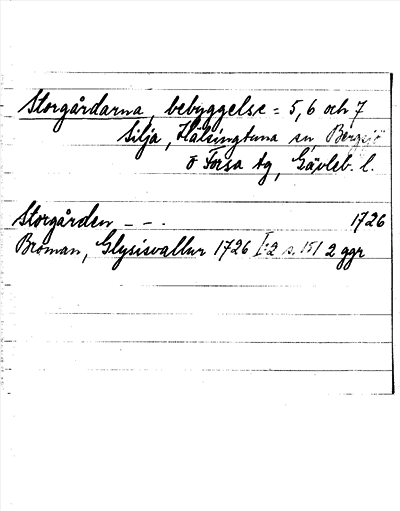 Storgårdarna, bebyggelse = 5, 6 och 7
Silja, Hälsingtuna sn, Bergsjö
o Forsa tg, Gävleb. l.
Storgården - - . 1726
Broman, Glysisvallur 1726 I:2 s. 151 2 ggr